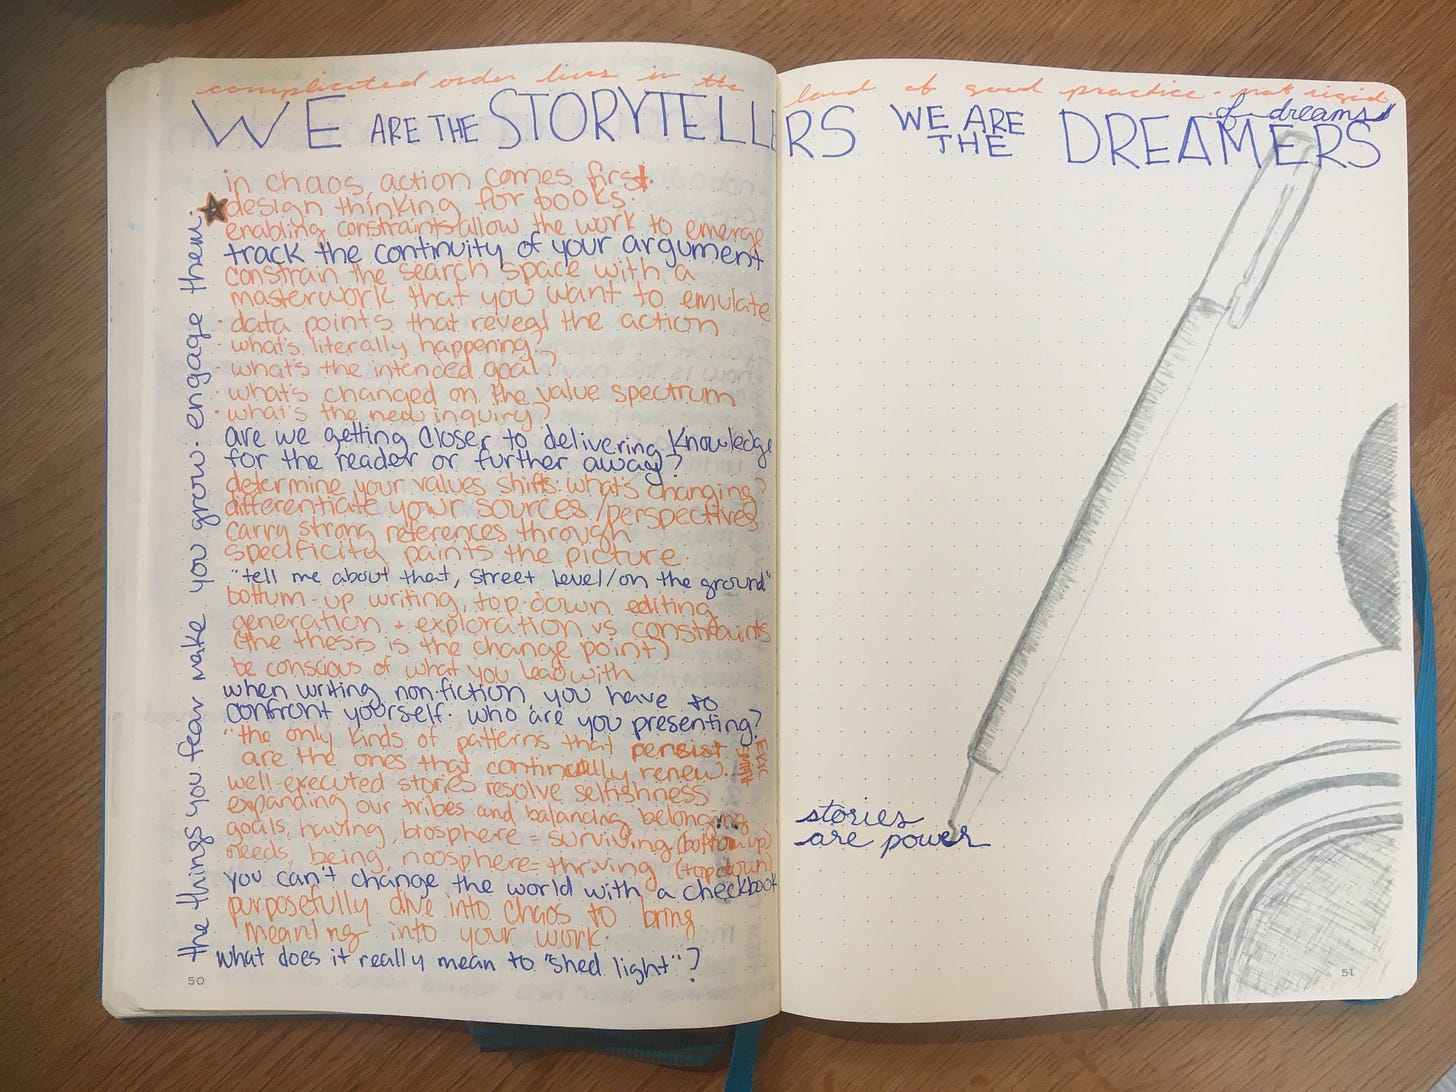 complicated order lives in the land of good practice - not rigid
of dreams
WE ARE THE STORYTELLERS WE ARE THE DREAMERS
in chaos action comes first.
design thinking for books.
enabling constraints allow the work to emerge
track the continuity of your argument
constrain the search space with a
masterwork that you want to emulate
· data points that reveal the action
· what's literally happening?
· what's the intended goal?
· what's changed on the value spectrum
· what's the new inquiry?
are we getting closer to delivering knowledge
for the reader or further away?
determine your values shifts: what's changing?
differentiate your sources/perspectives
carry strong references through
specificity paints the picture.
"tell me about that, street level/on the ground"
bottum-up writing, top down editing
generation + exploration vs constraints
(the thesis is the change point)
be conscious of what you lead with
when writing non-fiction, you have to
confront yourself. who are you presenting?
"the only kinds of patterns that persist
are the ones that continually renew."
well-executed stories resolve selfishness
expanding our tribes and balancing belonging
goals, having, biosphere = surviving (bottom up)
needs, being, noosphere = thriving (top down)
you can't change the world with a checkbook
purposefully dive into chaos to bring
meaning into your work.
what does it really mean to "shed light"?
the things you fear make you grow. engage them.
50
stories
are power
51